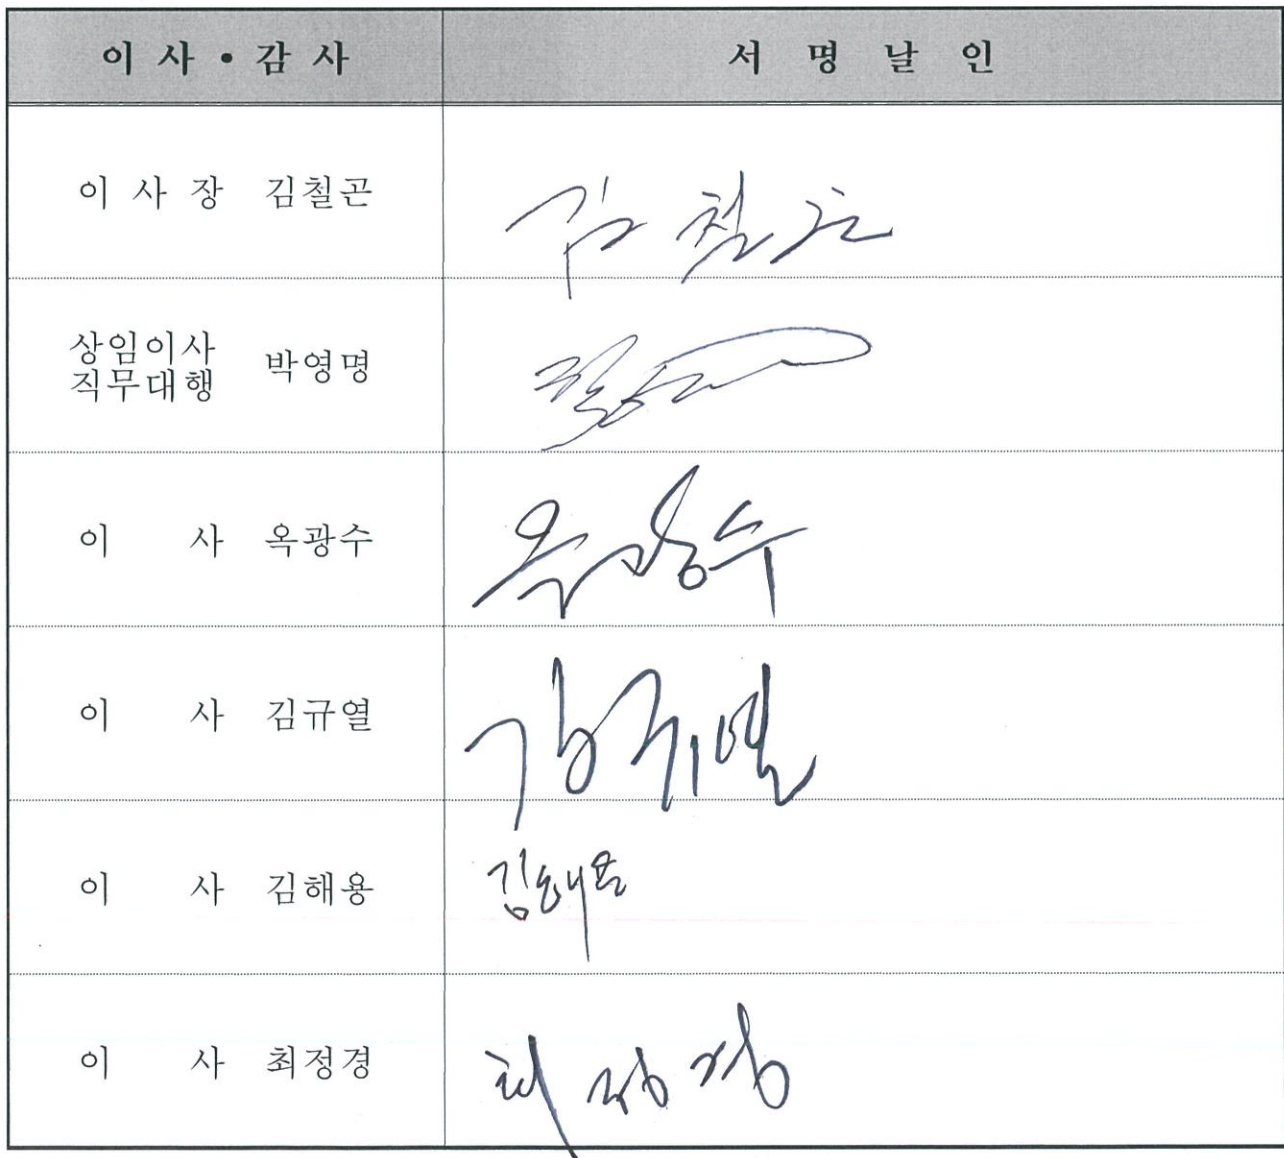 이 사 • 감 사 서 명 날 인
이 사 장 김철곤 김철곤
상임이사
직무대행 박영명
이 사 옥광수 옥광수
이 사 김규열 김규열
이 사 김해용 김해용
이 사 최정경 최정경